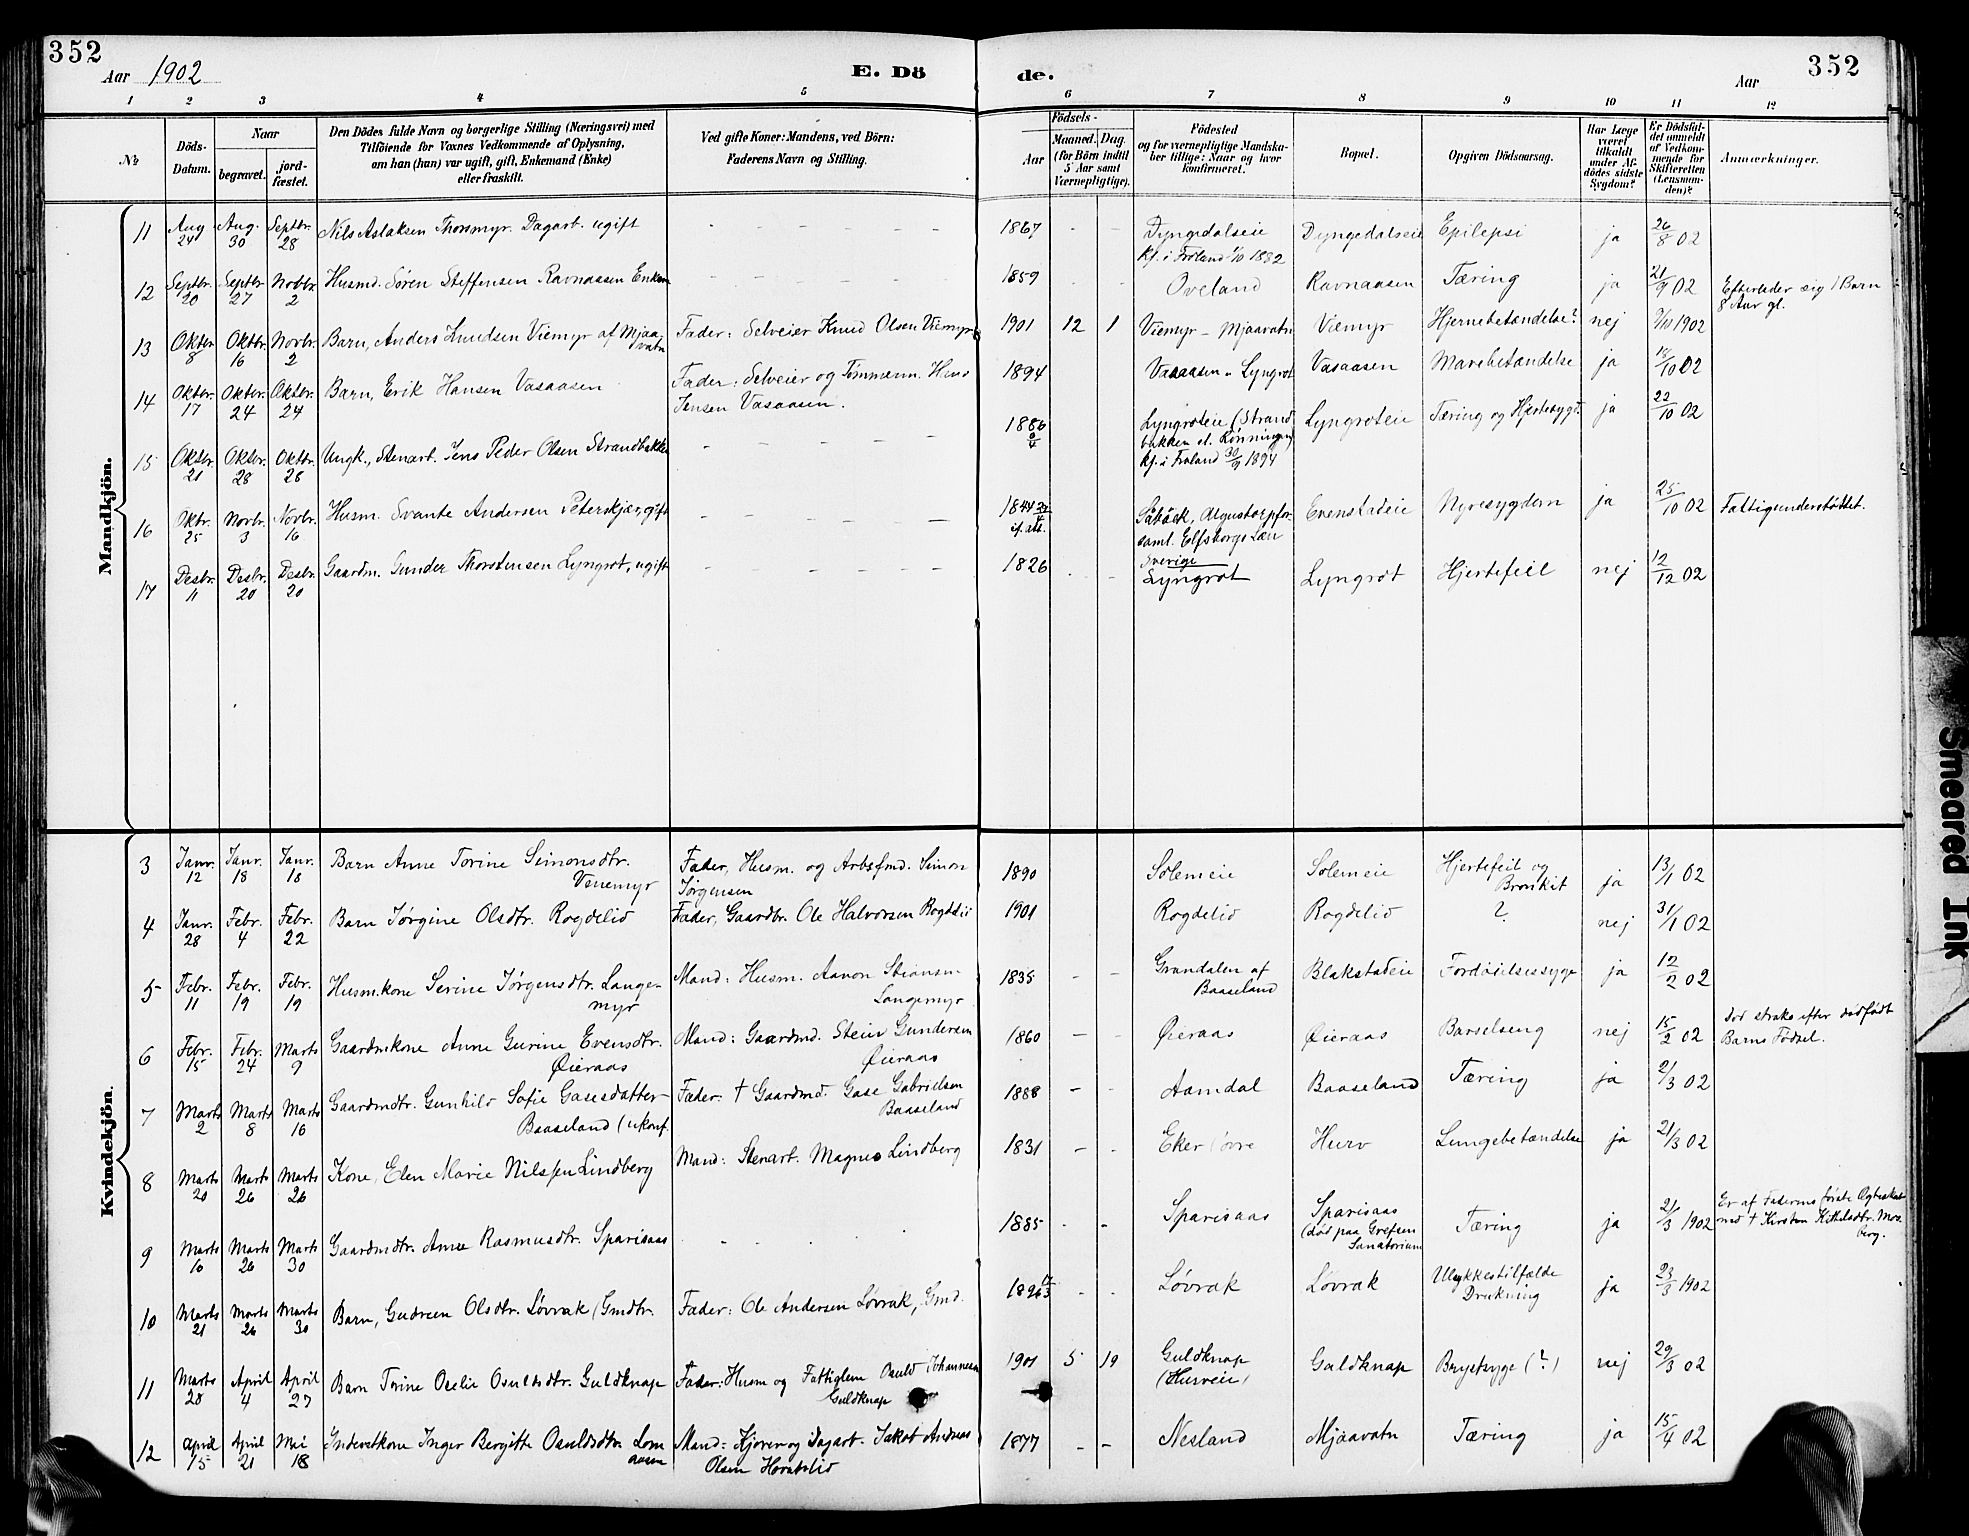 352
Aar 1902
E. Dö
de.
Aar
352
1 2 3 4 5 6 7 8 9 10 11 12
No
Döds-Datum.
Naar
begravet.
jord-fæstet.
Den Dödes fulde Navn og borgerlige Stilling (Næringsvei) med
Tilföiende for Voxnes Vedkommende af Oplysning,
om han (hun) var ugift, gift, Enkemand (Enke)
eller fraskilt.
Ved gifte Koner: Mandens, ved Börn:
Faderens Navn og Stilling.
Födsels-
Aar
Maaned. Dag.
(for Börn indtil
5 Aar samt
Værnepligtige).
Födested
og for værnepligtige Mandska-
ber tillige: Naar og hvor
konfirmeret.
Bopæl.
Opgiven Dödsaarsag.
Har Læge
været
tilkaldt
under Af-
dödes sidste
Sygdom?
Er Dödsfal-
det anmeldt
af Vedkom-
mende for
Skifteretten
(Lensman-
den)?
Anmærkninger.
Mandkjön.
11 Aug 24 Aug. 30 Septbr. 28 Nils Aslaksen Thorsmyr. Dagarb. ugift - - - - - 1867 - - Dyngedalseie Dyngedalseie Epilepsi ja 26/8 02
kf. i Froland 1/10 1882
12 Septbr. 20 Septbr 27 Novbr 2 Husmd. Sören Steffensen Ravnaasen Enkem - - - - - 1859 - - Oveland Ravnaasen Tæring ja 21/9 02 Efterlader sig 1 Barn
8 Aar gl.
13 Oktbr 8 Oktbr. 16 Novbr. 2 Barn, Anders Knudsen Viemyr af Mjaa-
vatn
Fader: Selveier Knud Olsen Viemyr 1901 12 1 Viemyr - Mjaavatn Viemyr Hjernebetændelse? nej 9/10 1902
14 Oktbr. 17 Oktbr. 24 Oktbr. 24 Barn, Erik Hansen Vasaasen Fader: Selveier og Tømmerm. Hans
Jensen Vasaasen.
1894 Vasaasen u. Lyngrot Vasaasen Mavebetændelse ja 18/10 02
15 Oktbr. 21 Oktbr. 28 Oktbr. 28 Ungk., Stenarb. Jens Peder Olsen Strandbakken - - - - - 1886 Lyngroteie (Strand
bakken el. Rønningen)
kf. i Froland 30/9 1894
Lyngroteie Tæring og Hjertesygd. ja 22/10 02
16 Oktbr. 25 Novbr. 3 Novbr. 16 Husm. Svante Andersen Peterskjær, gift - - - - - 1844
if. att.
Augustorpfor-
saml. Elfsborgs Læn
Sverige
Evenstadeie Nyresygdom ja 25/10 02 Fattigunderstøttet.
17 Desbr. 11 Desbr. 20 Desbr. 20 Gaardm. Gunder Thorstensen Lyngrot, ugift - - - - - 1826 - - Lyngrot Lyngrot Hjertefeil nej 12/12 02
Kvindekjön.
3 Janr. 12 Janr. 18 Janr. 18 Barn Anne Torine Simonsdtr.
Venemyr
Fader, Husm. og Arbsfmd. Simon
Jørgensen
1890 Solemeie Solemeie Hjertefeil og
Bronkit
ja 13/1 02
4 Janr. 28 Febr. 4 Febr. 22 Barn Jørgine Olsdtr. Rogdelid Fader, Gaardbr. Ole Halvorsen Rogdelid 1901 Rogdelid Rogdelid ? nej 31/1 02
5 Febr. 11 Febr. 19 Febr. 19 Husm.kone Serine Jørgensdtr. Lange-
myr
Mand: Husm. Aanon
Langemyr
1835 - - Grandalen af
Baaseland
Blakstadeie Fordøielsessyge ja 12/2 02
6 Febr. 15 Febr. 24 Marts 9 Gaardmkone Anne Gurine Evensdtr.
Øieraas
Mand: Gaardmd. Stein Gundersen
Øieraas
1860 - Øieraas Øieraas Barselseng nej 15/2 02 død straks efter dødfødt
Barns Fødsel.
7 Marts 2 Marts 8 Marts 16 Gaardmdtr. Gunhild Sofie Gasesdatter
Baaseland (ukonf.
Fader: † Gaardmd. Gase Gabrielsen
Baaseland
1888 - - Aamdal Baaseland Tæring ja 2/3 02
8 Marts 20 Marts 26 Marts 26 Kone, Elen Marie Nilssen Lindberg Mand: Stenarb. Magnus Lindberg 1831 - - Eker Hurv Lungebetændelse ja 21/3 02
9 Marts 10 Marts 26 Marts 30 Gaardmdtr. Anne Rasmusdtr. Sparisaas - 1885 - - Sparisaas Sparisaas
(død paa Grefsen
Sanatorium
Tæring ja 21/3 1902 Er af Faderens første Ægteskab
med † Kirsten Kittelsdtr. Mos
berg.
10 Marts 21 Marts 26 Marts 30 Barn, Gudrun Olsdtr. Løvrak (Gmdtr. Fader: Ole Andersen Løvrak, Gmd. 1896 17/3 - - Løvrak Løvrak Ulykkestilfælde
Drukning
ja 23/3 1902
11 Marts 28 April 4 April 27 Barn Torine Oselie Osuldsdtr. Guldknap Fader: Husm og Fattiglem Osuld Johannesen
Guldknap
1901 5 19 Guldknap
(Husveie)
Guldknap Brystsyge (?) nej 29/3 02
12 April 15 April 21 Mai 18 Inderstkone Inger Bergitte Osuldsdtr. Lom
aasen
Mand: Kjører og Dagarb. Jakob Andreas
Olsen Hornbelid
1877 - - Nesland Mjaavatn Tæring ja 15/4 02
Smeared Ink